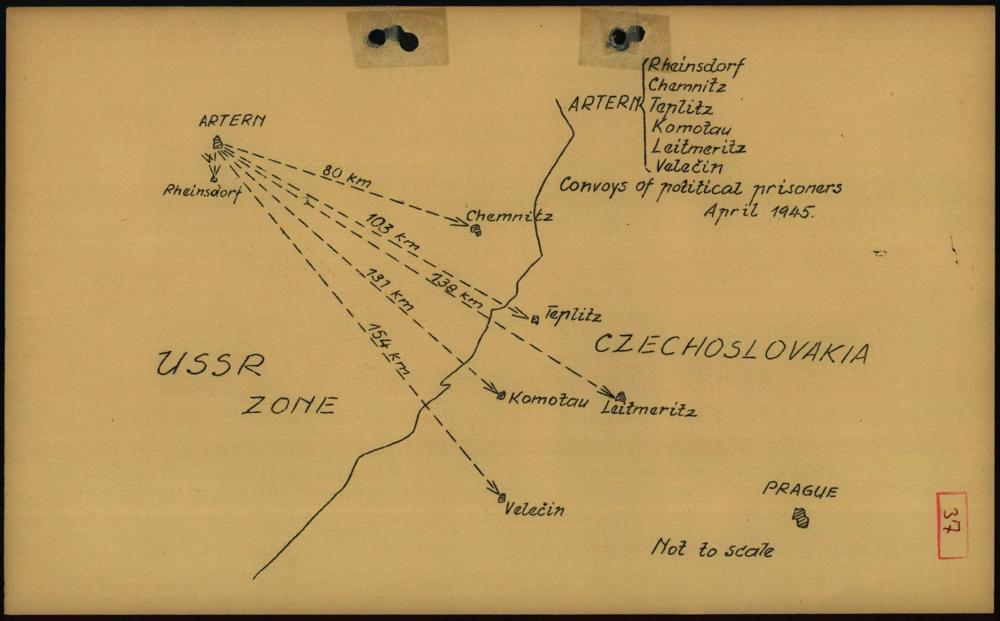 ARTERN
Rheinsdorf
Chemnitz
Teplitz
Komotau
Leitmeritz
Velečin
Convoys of political prisoners
April 1945.
ARTERN
Rheinsdorf
80 km
Chemnitz
103 km
138 km
131 km
154 km
Teplitz
CZECHOSLOVAKIA
USSR
ZONE
Komotau
Leitmeritz
Velečin
PRAGUE
Not to scale
37